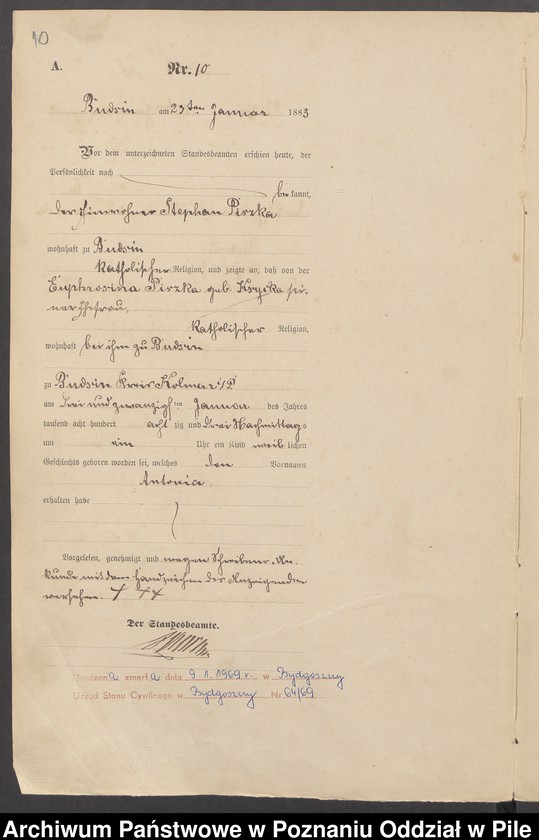 10
A.
Nr. 10
Budsin am 25ten Januar 1883
Vor dem unterzeichneten Standesbeamten erschien heute, der
Persönlichkeit nach
bekannt,
der Einwohner Stephan Piszka
wohnhaft zu Budsin
katholischer Religion, und zeigte an, daß von der
Euphrosina Piszka geb. Krycka sei-
ner Ehefrau,
katholischer Religion,
wohnhaft bei ihm zu Budsin
zu Budsin Kreis Kolmar i/P
am drei und zwanzigsten Januar des Jahres
tausend acht hundert achtzig und drei Nachmittags
um ein Uhr ein Kind weiblichen
Geschlechts geboren worden sei, welches den Vornamen
Antonia
erhalten habe
Vorgelesen, genehmigt und wegen Schreibens-Un-
kunde mit dem Handzeichen des Anzeigenden
versehen. + ++
Der Standesbeamte.
Urodzona zmarła dnia 9.1.1969 r. w Bydgoszczy
Urząd Stanu Cywilnego w Bydgoszczy Nr 64/69
Archiwum Państwowe w Poznaniu Oddział w Pile